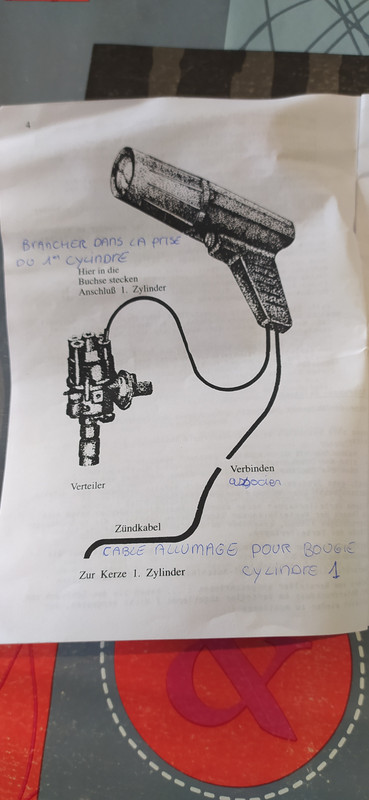 4
BRANCHER DANS LA PRISE
DU 1er CYLINDRE
Hier in die
Buchse stecken
Anschluß 1. Zylinder
Verteiler
Verbinden
associer
Zündkabel
CABLE ALLUMAGE POUR BOUGIE
CYLINDRE 1
Zur Kerze 1. Zylinder
&